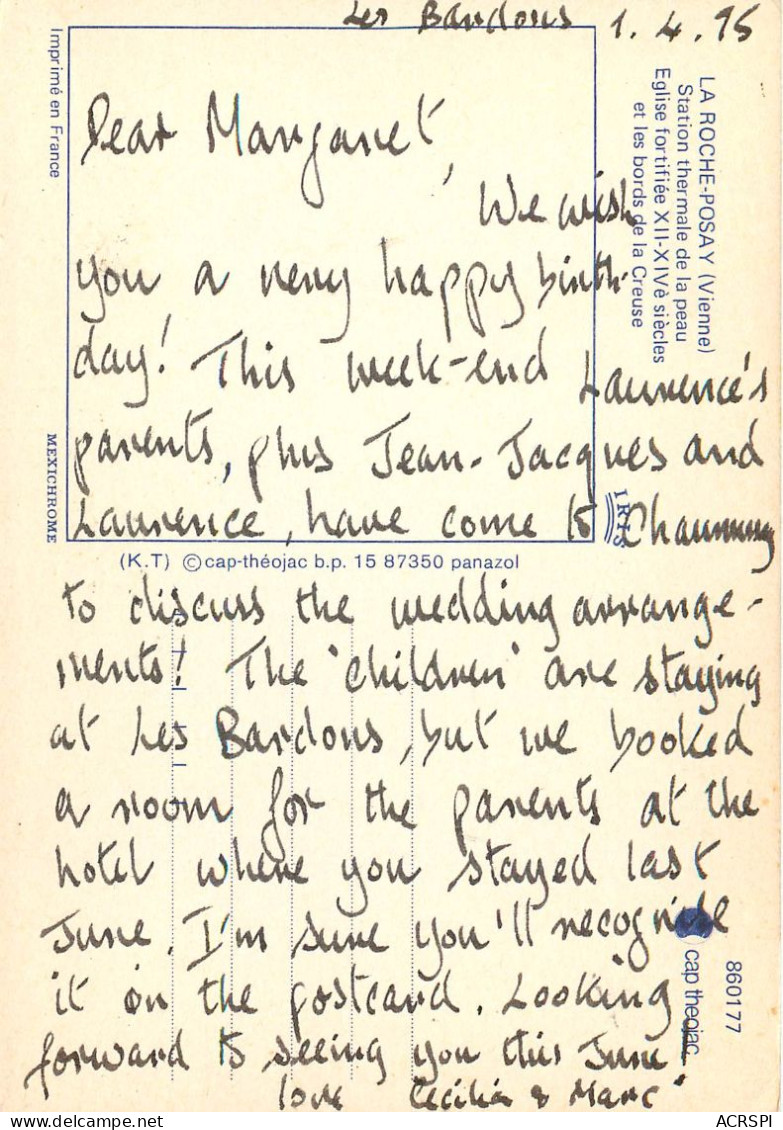 Les Bardous 1.4.95
Dear Margaret,
We wish
you a very happy birth-
day! This week-end Laurence's
parents, plus Jean-Jacques and
Laurence, have come to
to discuss the wedding arrange-
ments! The 'children' are staying
at Les Bardous, but we booked
a room for the parents at the
hotel where you stayed last
June. I'm sure you'll recognise
it on the postcard. Looking
forward to seeing you this June!
love Cecilia & Marc
Imprimé en France
MEXICHROME
LA ROCHE-POSAY (Vienne)
Station thermale de la peau
Eglise fortifiée XII-XIVè siècles
et les bords de la Creuse
IRIS
(K.T) © cap-théojac b.p. 15 87350 panazol
860177
cap théojac
ACRSPI